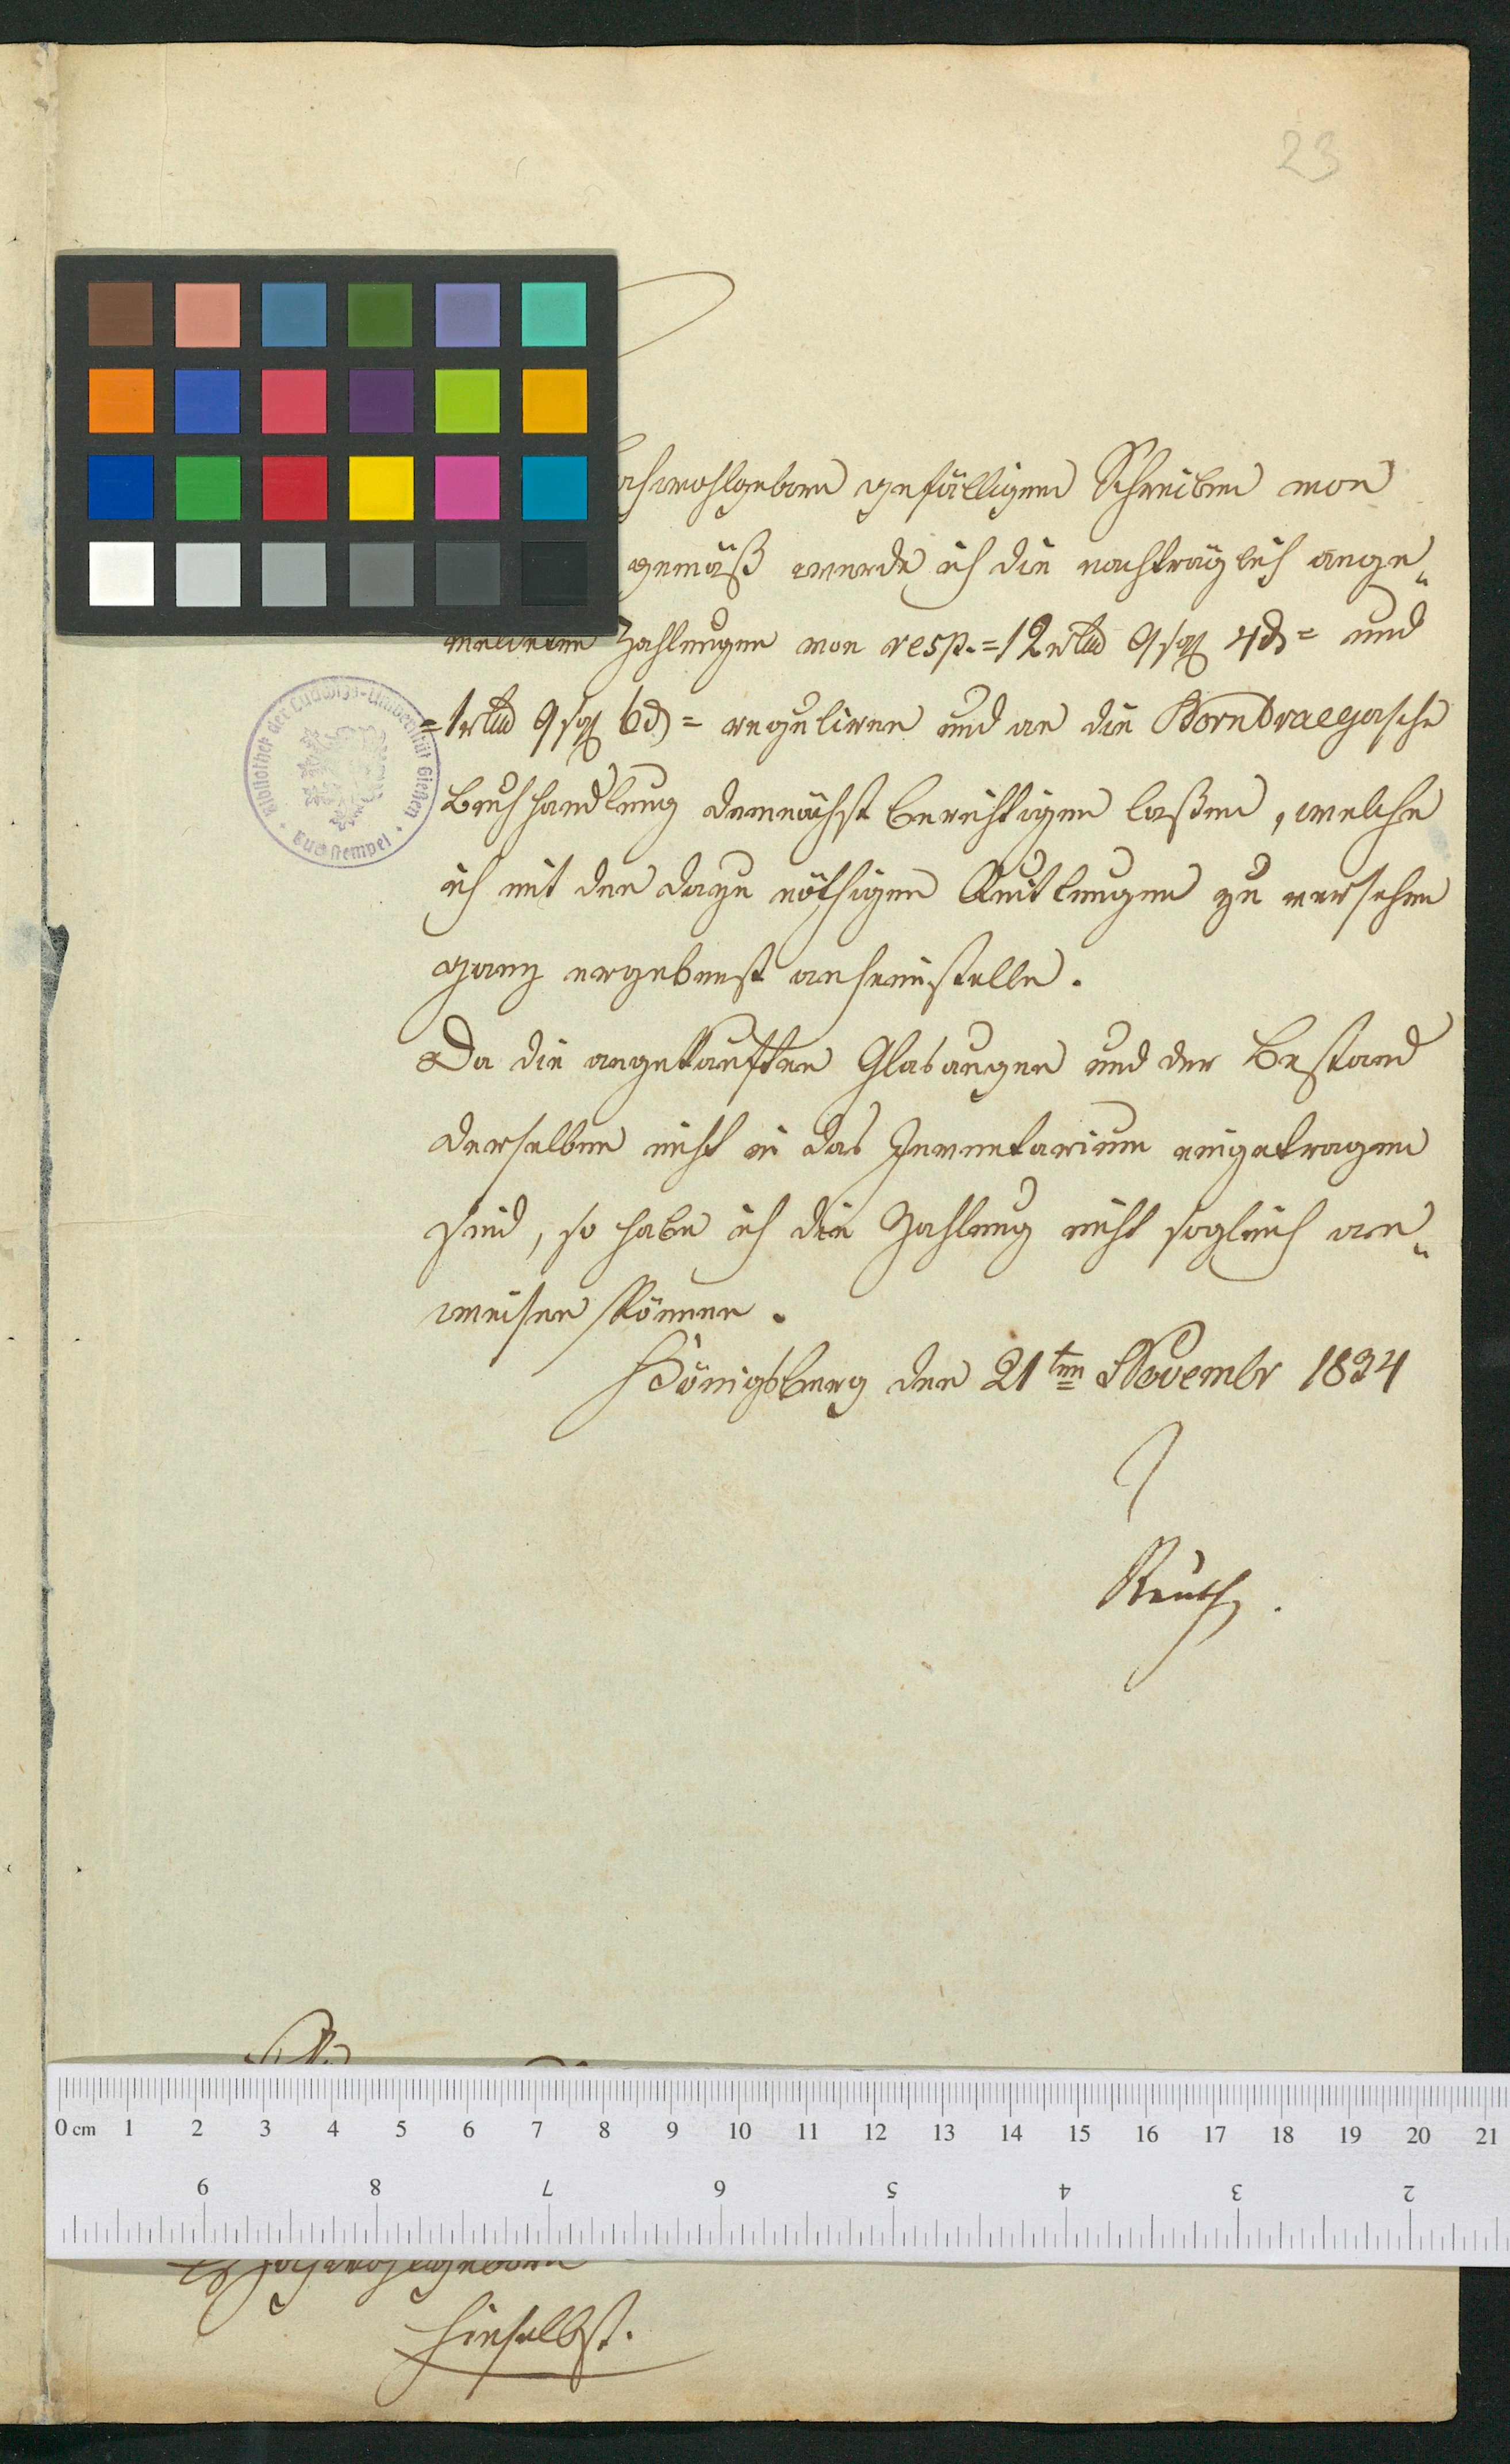 23
Hochwohlgeborn gefälligem Schreiben von
gemäß werde ich die nachträglich ange„
meldeten Zahlungen von resp. = 12 rtlr 9 sgr 4 d = und
= 1 rtlr 9 sgr 6 d = reguliren und an die Borntraegersche
Buchhandlung demnächst berichtigen laßen, welche
ich mit den dazu nöthigen Quitungen zu versehen
ganz ergebenst anheimstelle.
Da die angekauften Glasaugen und der Bestand
derselben nicht in das Inventarium eingetragen
sind, so habe ich die Zahlung nicht sogleich an„
weisen können.
Königsberg den 21ten Novembr 1834
Reusch.
Bibliothek der Ludwigs-Universität Gießen
Hochwohlgeborn
hieselbst.
0 cm 1 2 3 4 5 6 7 8 9 10 11 12 13 14 15 16 17 18 19 20 21
9 8 7 6 5 4 3 2